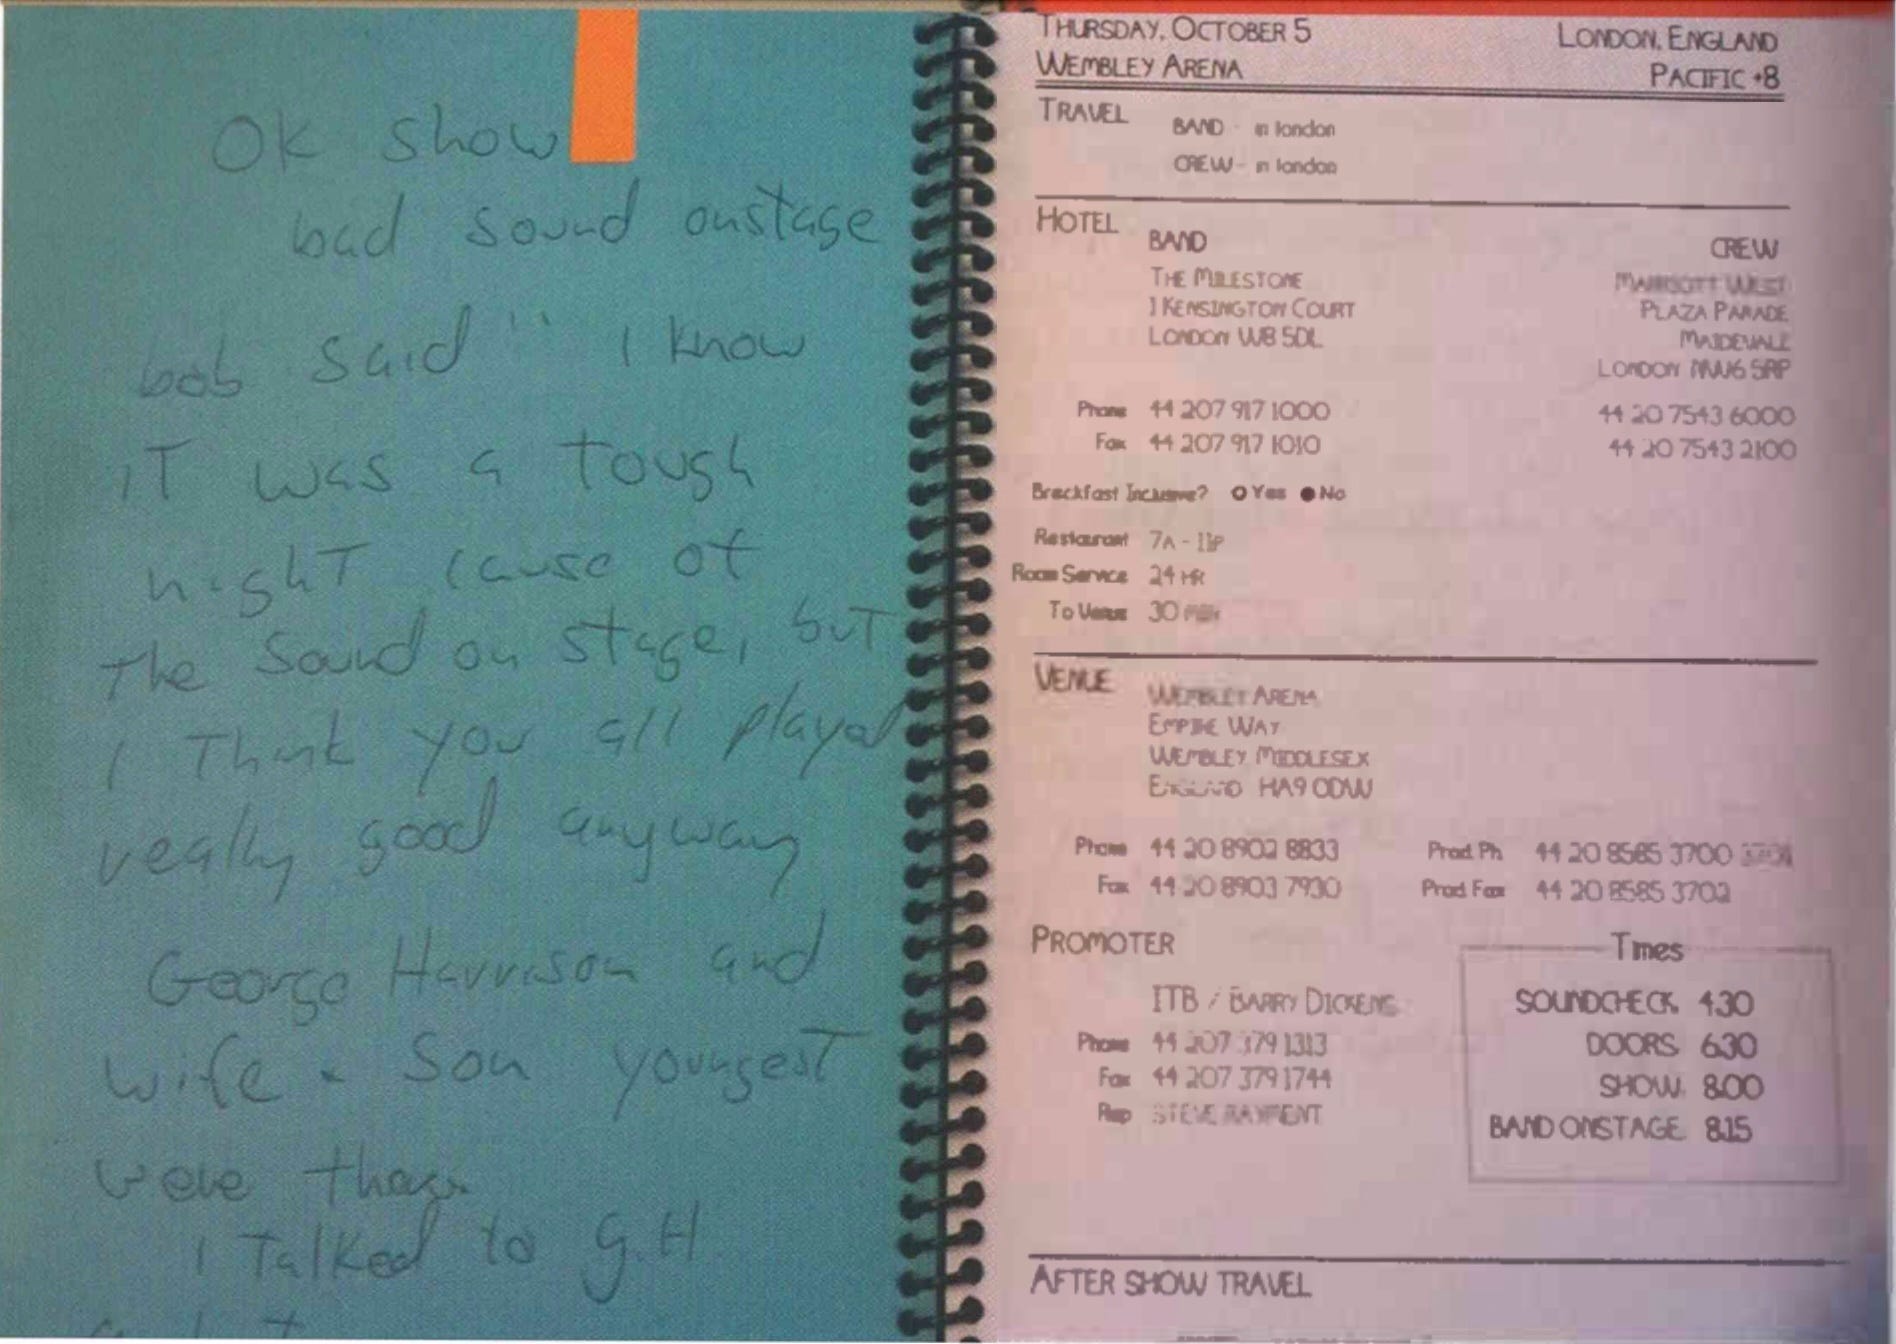 Ok show
bad sound onstage
bob said " I know
iT was a Tough
nighT cause of
The Sound on stage, buT
I Think you all played
really good anyway
George Harrison and
wife + Son youngesT
were
I Talked to G.H
THURSDAY, OCTOBER 5
LONDON, ENGLAND
WEMBLEY ARENA
PACIFIC +8
TRAVEL
BAND - in london
CREW - in london
HOTEL
BAND
THE MILESTONE
1 KENSINGTON COURT
LONDON W8 5DL
CREW
MARRIOTT WEST
PLAZA PARADE
MAIDEVALE
LONDON NW6 5RP
Phone 44 207 917 1000 44 20 7543 6000
Fax 44 207 917 1010 44 20 7543 2100
Breakfast Inclusive? Yes No
Restaurant 7A - 11P
Room Service 24 HR
To Venue 30 MIN
VENUE
WEMBLEY ARENA
EMPIRE WAY
WEMBLEY MIDDLESEX
ENGLAND HA9 0DW
Phone 44 20 8902 8833 Prod. Ph 44 20 8585 3700
Fax 44 20 8903 7930 Prod. Fax 44 20 8585 3702
PROMOTER
ITB / BARRY DICKENS
Phone 44 207 379 1313
Fax 44 207 379 1744
Rep STEVE RAYMENT
Times
SOUNDCHECK 4:30
DOORS 6:30
SHOW: 8:00
BAND ONSTAGE 8:15
AFTER SHOW TRAVEL